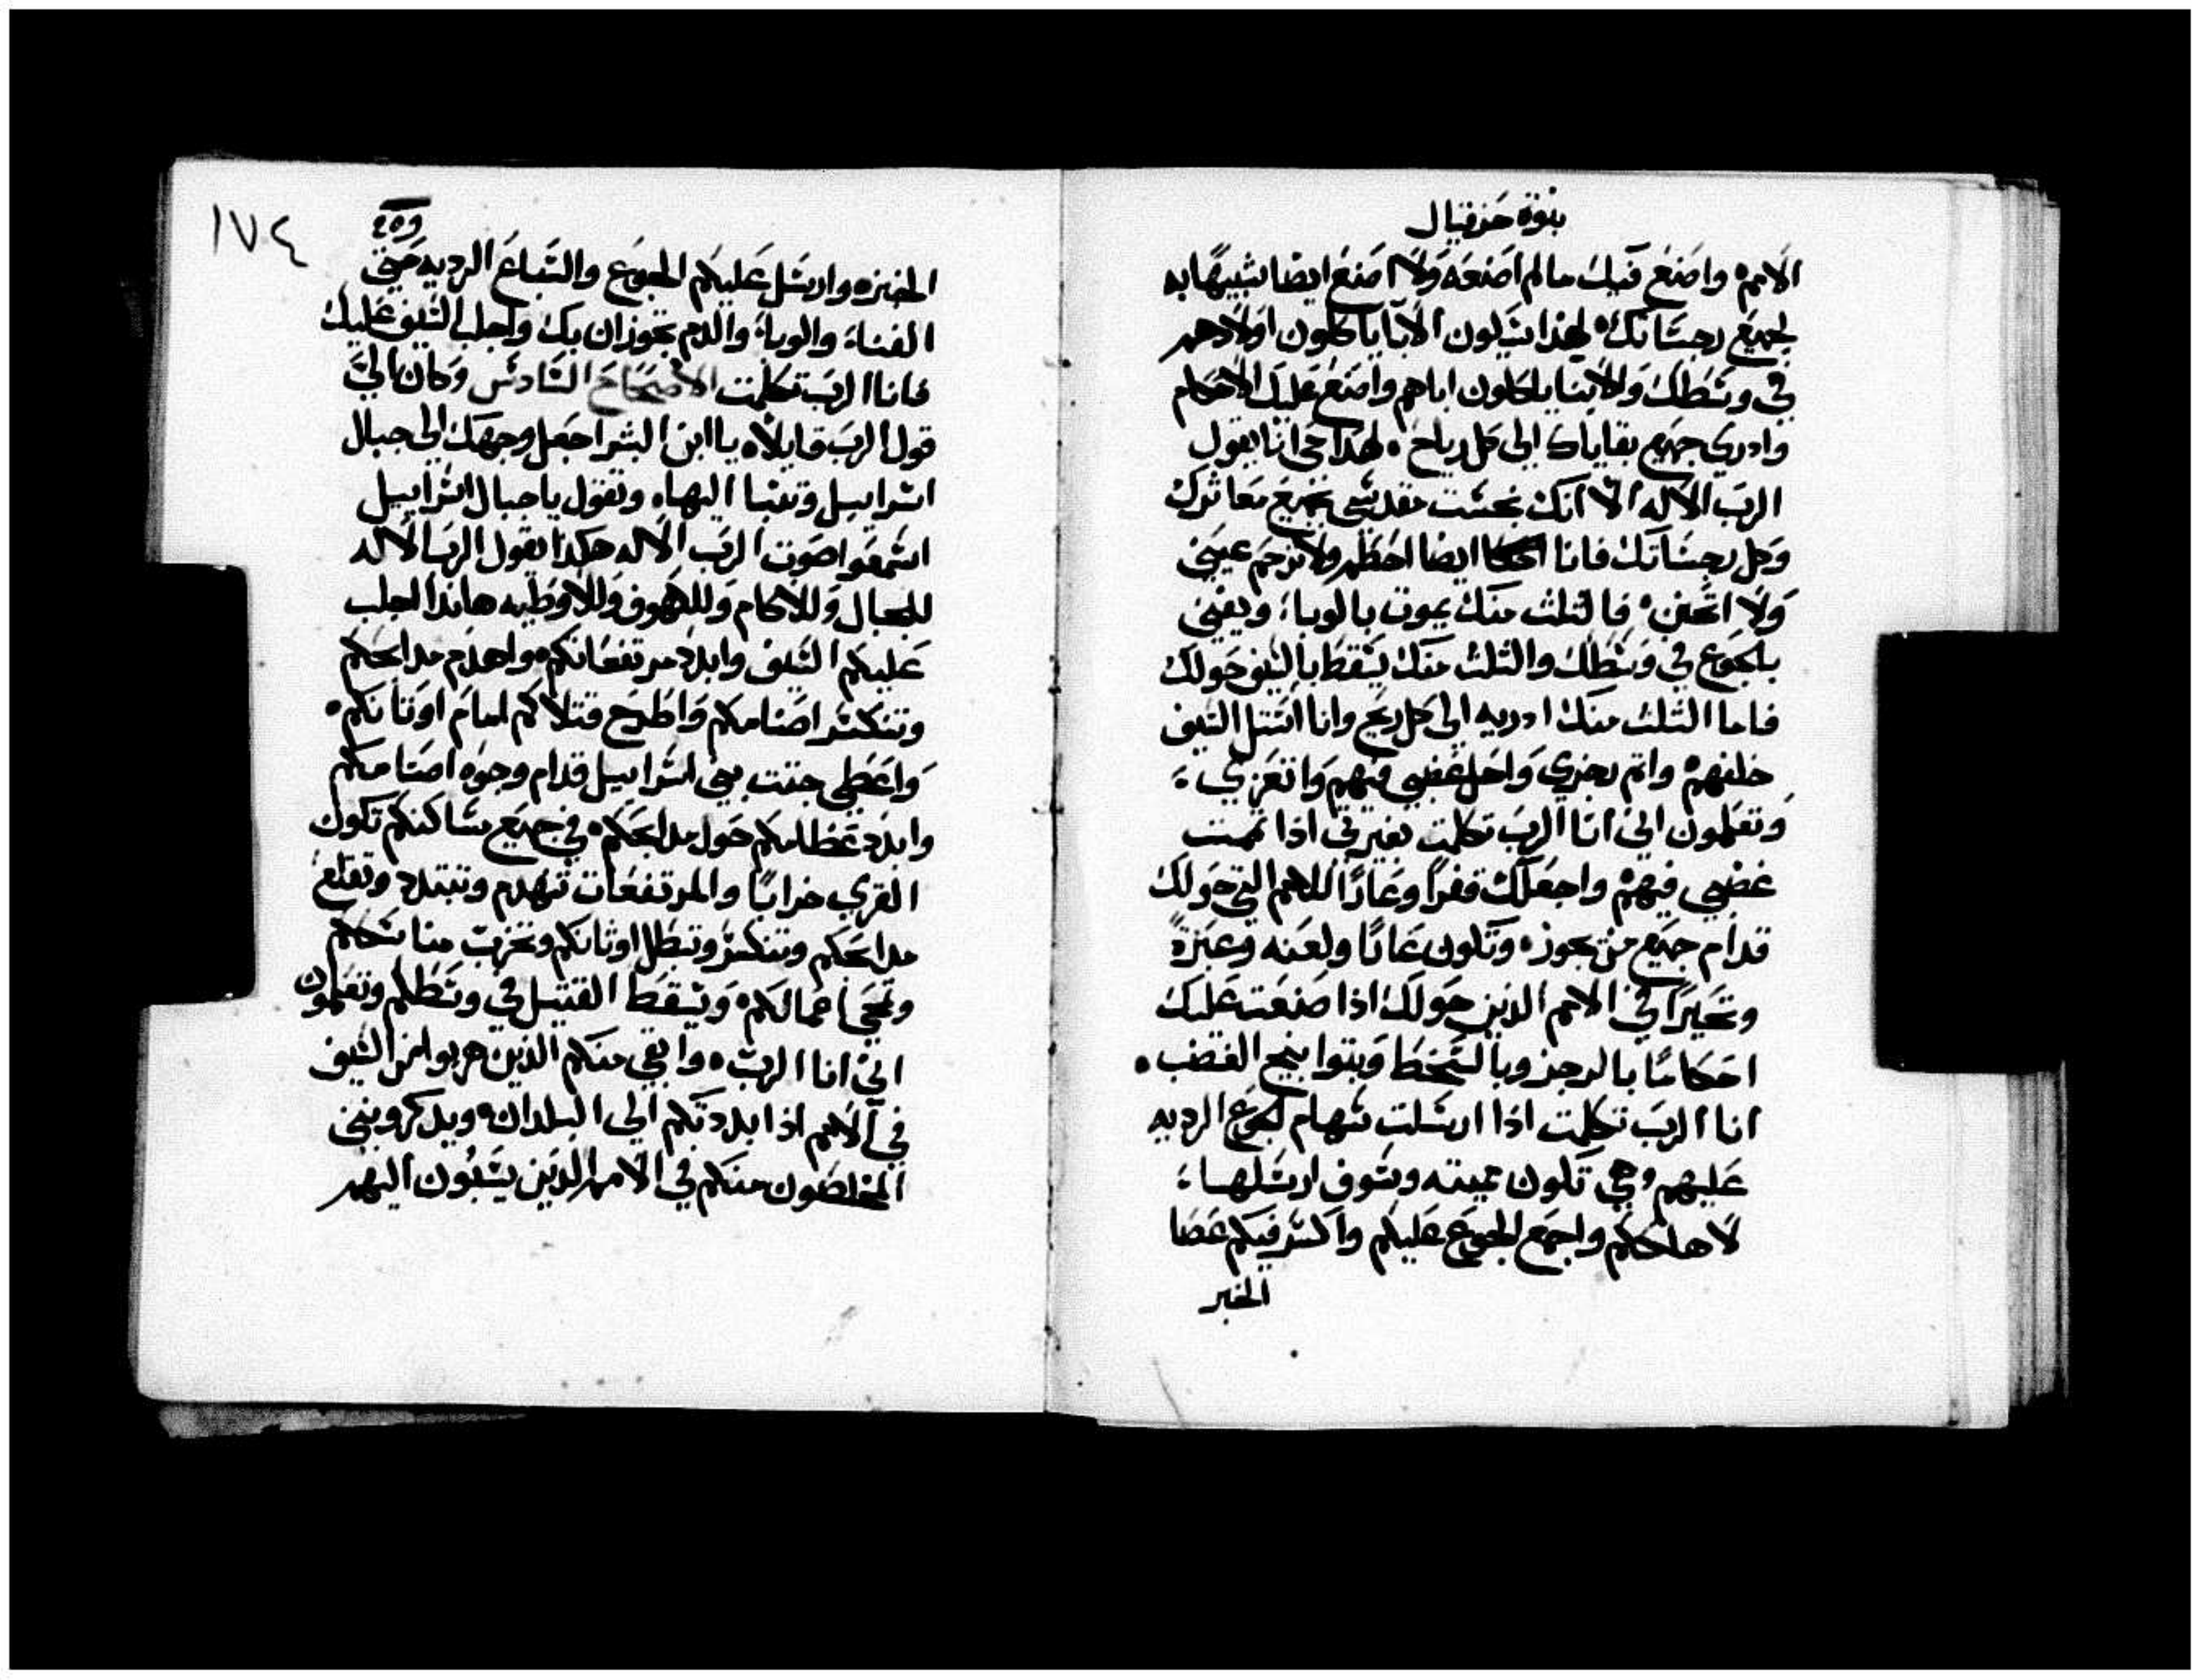 نبوة حزقيال
الامم واصنع فيك مالم اصنعه ولا اصنع ايضا شبيهًا به
لجميع رجساتك لهذا يكون الابا ياكلون اولادهم
في وسطك والابنا ياكلون اباهم واصنع عليك الاحكام
وادري جميع بقاياك الى كل رياح لهذا حي انا يقول
الرب الاله الا انك نجست مقدسي بجميع معاثرك
وكل رجساتك فانا ايضا احطم ولا ترحم عيني
ولا اتحنن فالثلث منك يموت بالوباء ويفني
بالجوع في وسطك والثلث منك يسقط بالسيف حولك
فاما الثلث منك ادريه الى كل ريح وانا استل السيف
خلفهم واتم رجزي واحل غضبي فيهم واتعزي
وتعلمون اني انا الرب تكلمت بغيرتي اذا تممت
غضبي فيهم واجعلك قفرًا وعارًا للامم التي حولك
قدام جميع من يجوز وتكون عارًا ولعنه وعبرةً
وتحيرًا في الامم الذين حولك اذا صنعت عليك
احكامًا بالرجز وبالسخط وبتوابيخ الغضب
انا الرب تكلمت اذا ارسلت سهام الجوع الرديه
عليهم وهي تكون مميته وسوف ارسلها
لاهلككم واجمع الجوع عليكم واكسر فيكم عصا
الخبز
١٧٤
الخبز وارسل عليكم الجوع والسباع الرديه حتى
الفناء والوباء والدم يجوزان بك واجلب السيف عليك
فانا الرب تكلمت الاصحاح السادس وكان الي
قول الرب قايلاً يا ابن البشر اجعل وجهك الى جبال
اسراييل وتنبا اليها وتقول يا جبال اسراييل
اسمعوا صوت الرب الاله هكذا يقول الرب الاله
للجبال وللاكام وللكهوف وللاوطيه هانذا اجلب
عليكم السيف وابدد مرتفعاتكم واهدم مدابحكم
وتنكسر اصنامكم واطرح قتلاكم امام اوثانكم
واعطي جثث بني اسراييل قدام وجوه اصنامكم
وابدد عظامكم حول مدابحكم في جميع مساكنكم تكون
القري خرابًا والمرتفعات تنهدم وتتبدد وتقلع
مدابحكم وتنكسر وتبطل اوثانكم وتخرب مناسككم
وتمحي اعمالكم ويسقط القتيل في وسطكم وتعلمون
اني انا الرب وابقي منكم الذين هربوا من السيف
في الامم اذا بددتكم الى البلدان ويدكرونني
المخلصون منكم في الامم الذين يسبون اليهم